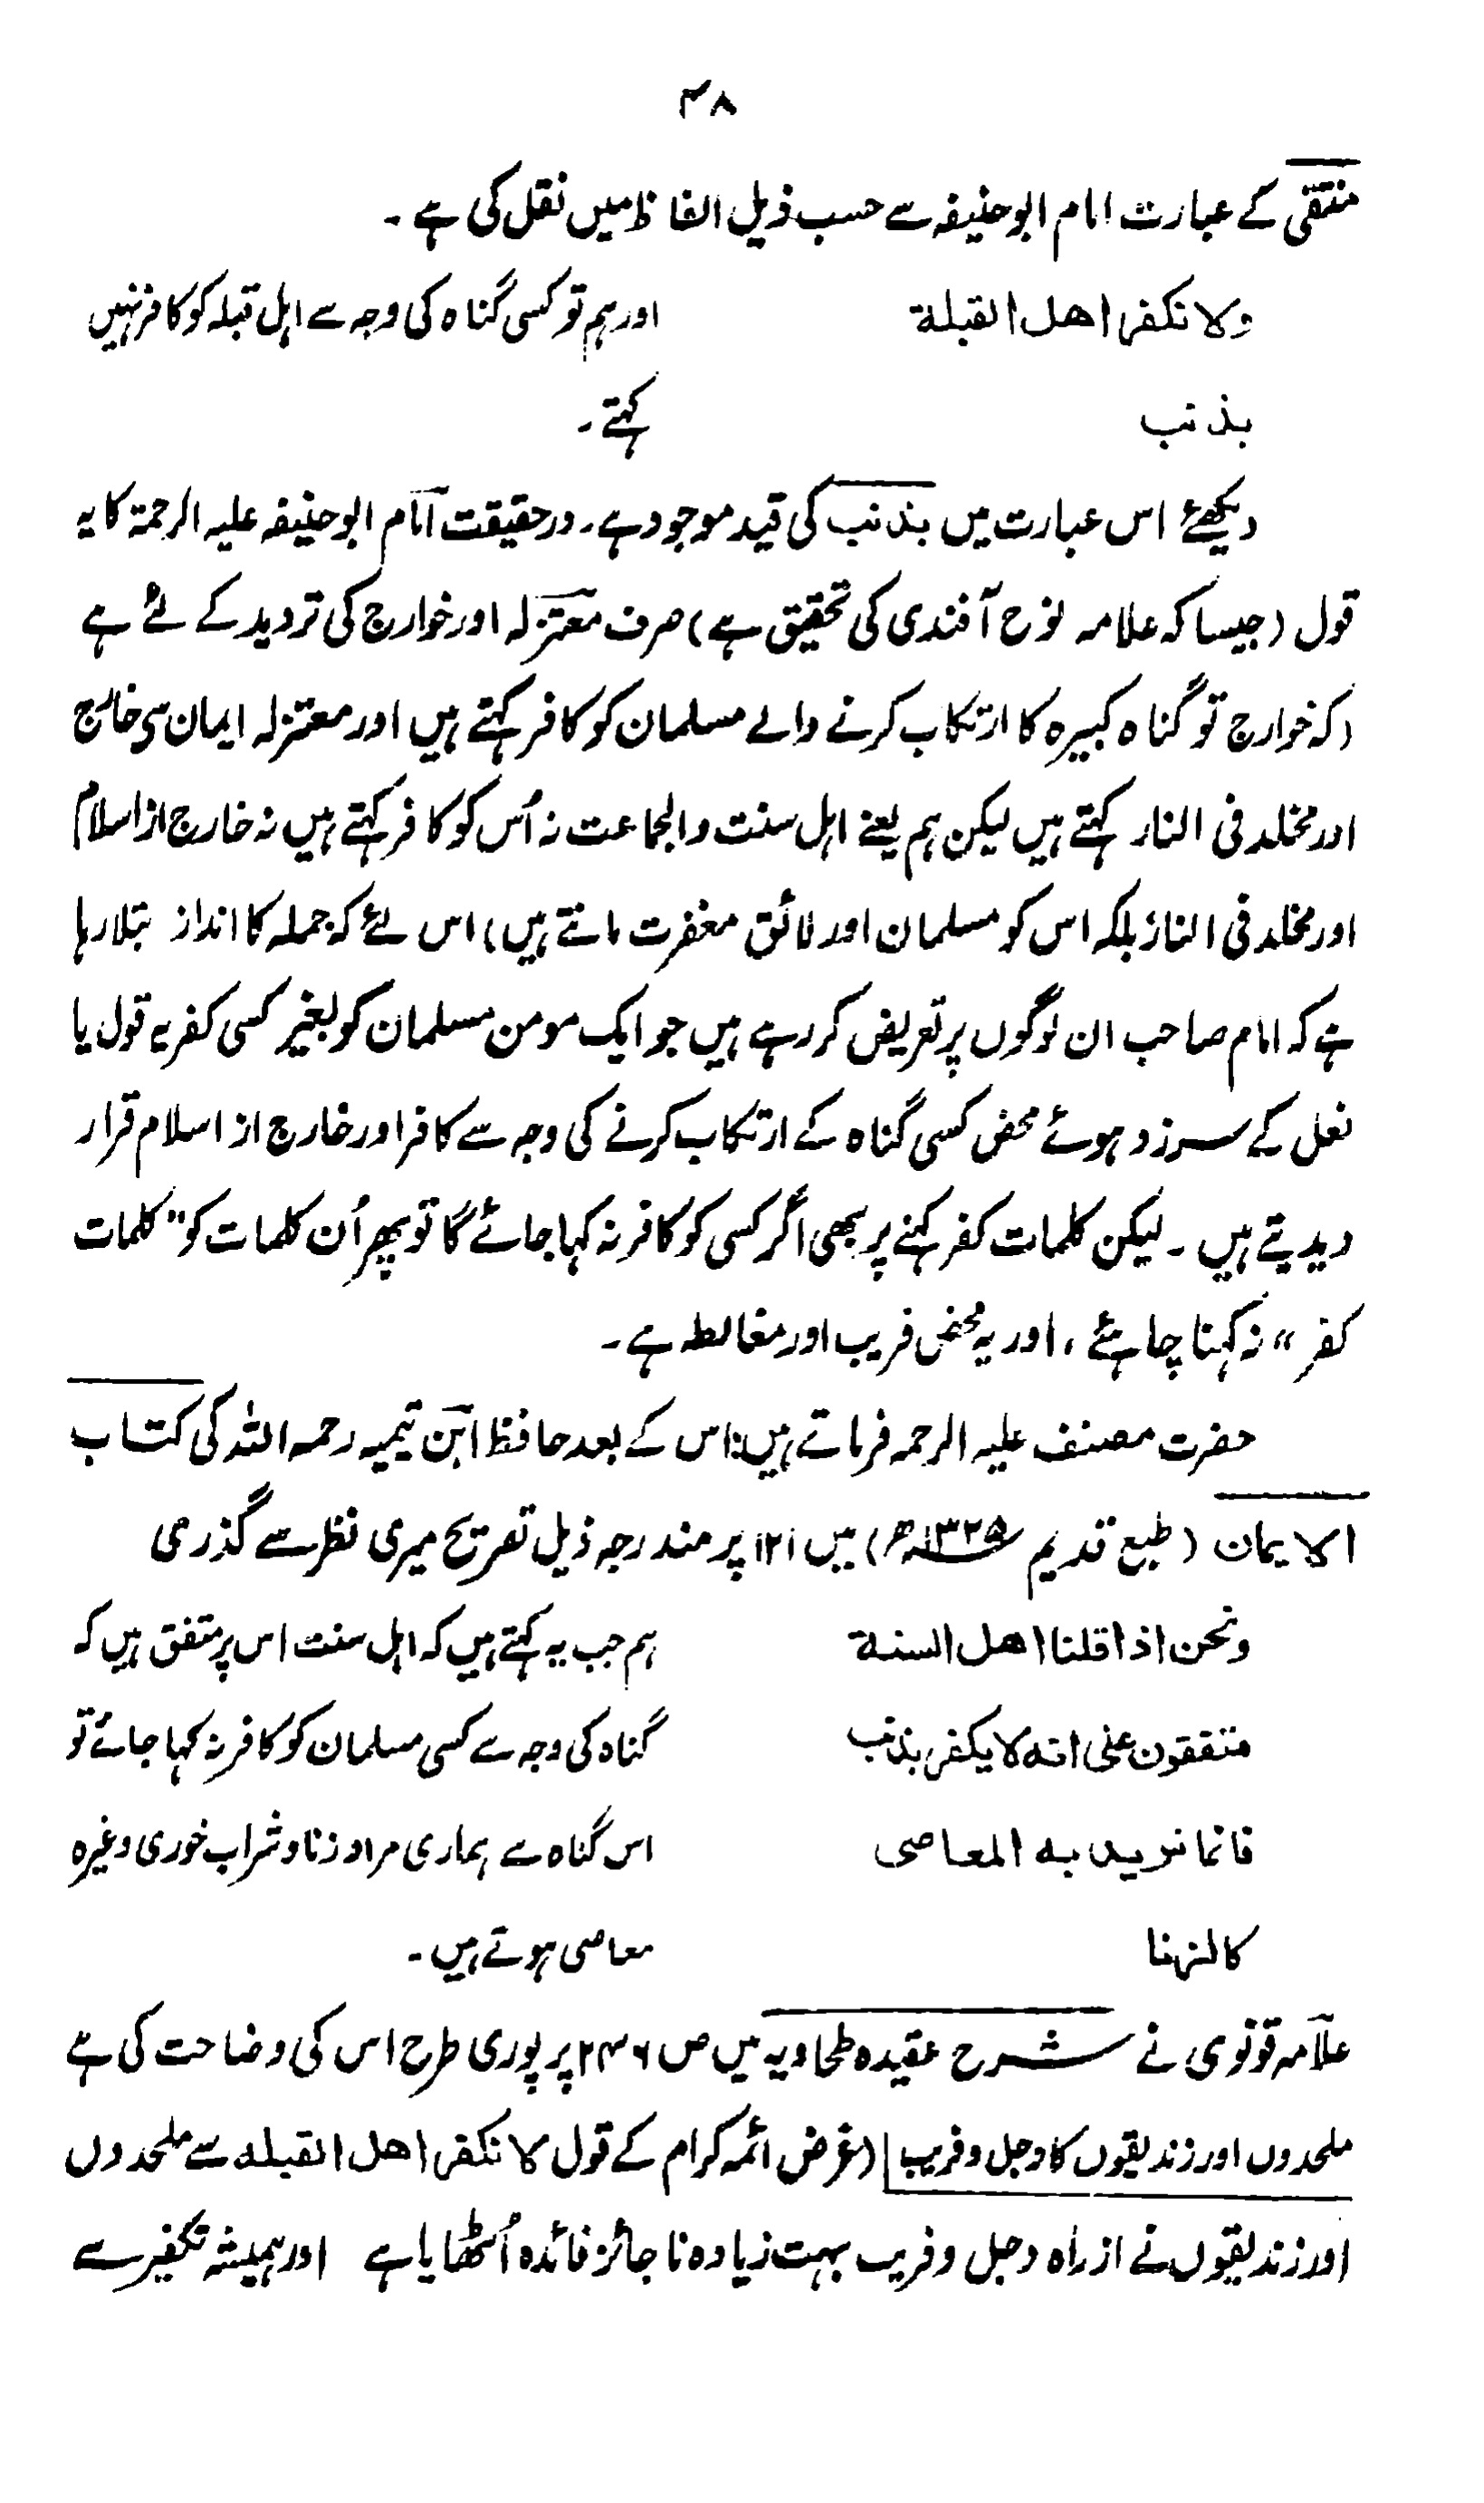 ۴۸
منتقی کے عبارت امام ابو حنیفہ سے حسب ذیل الفاظ میں نقل کی ہے ۔
ولا نکفر اھل القبلة اور ہم تو کسی گناہ کی وجہ سے اہل قبلہ کو کافر نہیں
بذنب کہتے ۔
دیکھئے اس عبارت میں بذنب کی قید موجود ہے ۔ درحقیقت امام ابو حنیفہ علیہ الرحمۃ کا یہ
قول (جیسا کہ علامہ نوح آفندی کی تحقیق ہے) صرف معتزلہ اور خوارج کی تردید کے لئے ہے
(کہ خوارج تو گناہ کبیرہ کا ارتکاب کرنے والے مسلمان کو کافر کہتے ہیں اور معتزلہ ایمان سی خارج
اور مخلد فی النار کہتے ہیں لیکن ہم یعنے اہل سنت والجماعت نہ اُس کو کافر کہتے ہیں نہ خارج از اسلام
اور مخلد فی النار، بلکہ اس کو مسلمان اور لائق مغفرت مانتے ہیں) اس لئے کہ جملہ کا انداز بتلا رہا
ہے کہ امام صاحب ان لوگوں پر تعریض کر رہے ہیں جو ایک مومن مسلمان کو بغیر کسی کفریہ قول یا
فعل کے سرزد ہوئے محض کسی گناہ کے ارتکاب کرنے کی وجہ سے کافر اور خارج از اسلام قرار
دیدیتے ہیں ۔ لیکن کلمات کفر کہنے پر بھی اگر کسی کو کافر نہ کہا جائے گا تو پھر اُن کلمات کو "کلمات
کفر" نہ کہنا چاہئے ، اور یہ محض فریب اور مغالطہ ہے ۔
حضرت مصنف علیہ الرحمہ فرماتے ہیں: اس کے بعد حافظ ابن تیمیہ رحمہ اللہ کی کتاب
الایمان (طبع قدیم ۱۳۲۵ھ) میں ۱۲۱ پر مندرجہ ذیل تصریح میری نظر سے گذری
ونحن اذا قلنا اھل السنة ہم جب یہ کہتے ہیں کہ اہل سنت اس پر متفق ہیں کہ
متفقون علی انه لا یکفر بذنب گناہ کی وجہ سے کسی مسلمان کو کافر نہ کہا جائے تو
فانما نرید به المعاصی اس گناہ سے ہماری مراد زنا و شراب خوری وغیرہ
کالزنا معاصی ہوتے ہیں ۔
علامہ قونوی نے شرح عقیدہ طحاویہ میں ص ۲۴۶ پر پوری طرح اس کی وضاحت کی ہے
ملحدوں اور زندیقوں کا دجل و فریب (غرض ائمہ کرام کے قول لا نکفر اھل القبلہ سے ملحدوں
اور زندیقوں نے از راہ دجل و فریب بہت زیادہ ناجائز فائدہ اُٹھایا ہے اور ہمیشہ تکفیر سے